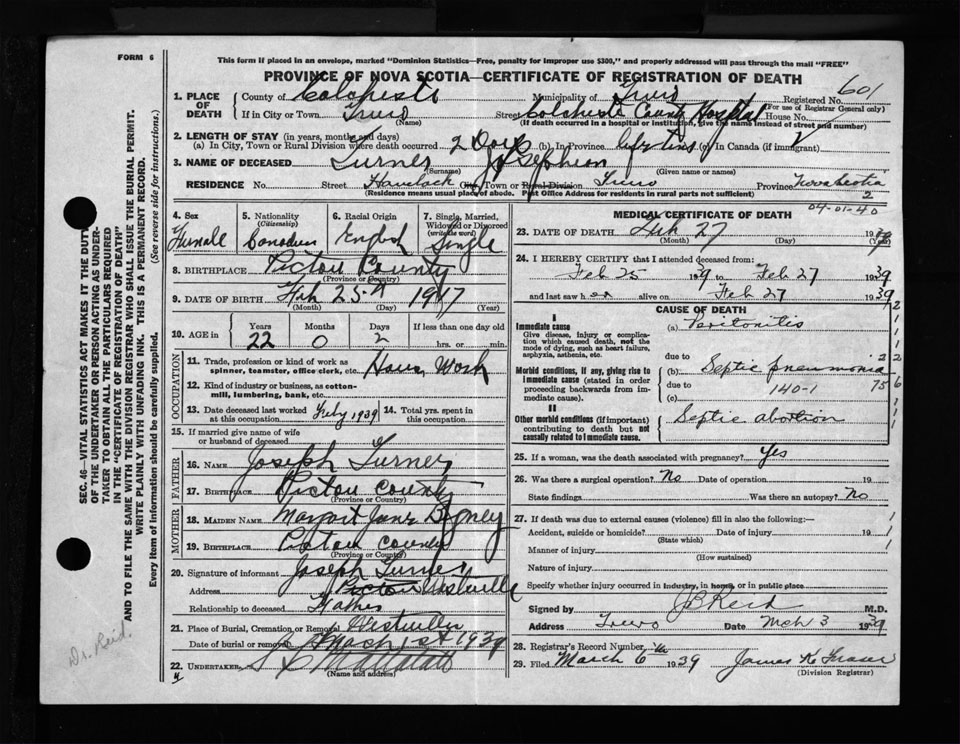 FORM 6
This form if placed in an envelope, marked "Dominion Statistics—Free, penalty for improper use $300," and properly addressed will pass through the mail "FREE"
PROVINCE OF NOVA SCOTIA—CERTIFICATE OF REGISTRATION OF DEATH
601
1. PLACE OF DEATH County of Colchester Municipality of Truro Registered No.
(For use of Registrar General only)
If in City or Town Truro Street Colchester County Hospital House No.
(Name) (If death occurred in a hospital or institution, give the name instead of street and number)
2. LENGTH OF STAY (in years, months and days)
(a) In City, Town or Rural Division where death occurred 2 Days (b) In Province lifetime (c) In Canada (if immigrant)
3. NAME OF DECEASED Turner
(Surname) (Given name or names)
RESIDENCE No. Street City, Town or Rural Division Truro Province Nova Scotia
(Residence means usual place of abode. Post Office Address for residents in rural parts not sufficient)
2
04-01-40
4. Sex Female
5. Nationality (Citizenship) Canadian
6. Racial Origin English
7. Single, Married, Widowed or Divorced (write the word) Single
8. BIRTHPLACE Pictou County
(Province or Country)
9. DATE OF BIRTH Feb 25th 1917
(Month) (Day) (Year)
10. AGE in Years Months Days If less than one day old
22 0 2 hrs. or min.
OCCUPATION
11. Trade, profession or kind of work as spinner, teamster, office clerk, etc. House Work
12. Kind of industry or business, as cotton-mill, lumbering, bank, etc.
13. Date deceased last worked at this occupation 1939
14. Total yrs. spent in this occupation
15. If married give name of wife or husband of deceased
FATHER
16. Name Joseph Turner
17. Birthplace Pictou County
(Province or Country)
MOTHER
18. Maiden Name Margaret Jane
19. Birthplace Pictou County
(Province or Country)
20. Signature of informant Joseph Turner
Address Pictou Westville
Relationship to deceased Father
21. Place of Burial, Cremation or Removal Westville
Date of burial or removal March 1st 1939
22. Undertaker
(Name and address)
4
MEDICAL CERTIFICATE OF DEATH
23. DATE OF DEATH Feb 27 1939
(Month) (Day) (Year)
24. I HEREBY CERTIFY that I attended deceased from
Feb 25 1939 to Feb 27 1939
and last saw her alive on Feb 27 1939
CAUSE OF DEATH
I
Immediate cause (a) Peritonitis
Give disease, injury or complication which caused death, not the mode of dying, such as heart failure, asphyxia, asthenia, etc.
due to
Morbid conditions, if any, giving rise to immediate cause (stated in order proceeding backwards from immediate cause).
(b) Septic pneumonia
due to 140-1
(c)
II
Other morbid conditions (if important) contributing to death but not causally related to immediate cause.
Septic abortion
25. If a woman, was the death associated with pregnancy? Yes
26. Was there a surgical operation? No Date of operation 19
State findings Was there an autopsy? No
27. If death was due to external causes (violence) fill in also the following:—
Accident, suicide or homicide? Date of injury 19
(State which)
Manner of injury
(How sustained)
Nature of injury
Specify whether injury occurred in industry, in home, or in public place
Signed by J B Reid M.D.
Address Truro Date Mch 3 1939
28. Registrar's Record Number
29. Filed March 6 1939 James K Fraser
(Division Registrar)
SEC. 46—VITAL STATISTICS ACT MAKES IT THE DUTY
OF THE UNDERTAKER OR PERSON ACTING AS UNDER-
TAKER TO OBTAIN ALL THE PARTICULARS REQUIRED
IN THE "CERTIFICATE OF REGISTRATION OF DEATH"
AND TO FILE THE SAME WITH THE DIVISION REGISTRAR WHO SHALL ISSUE THE BURIAL PERMIT.
WRITE PLAINLY WITH UNFADING INK. THIS IS A PERMANENT RECORD.
Every item of information should be carefully supplied. (See reverse side for instructions.)
Dr. Reid.